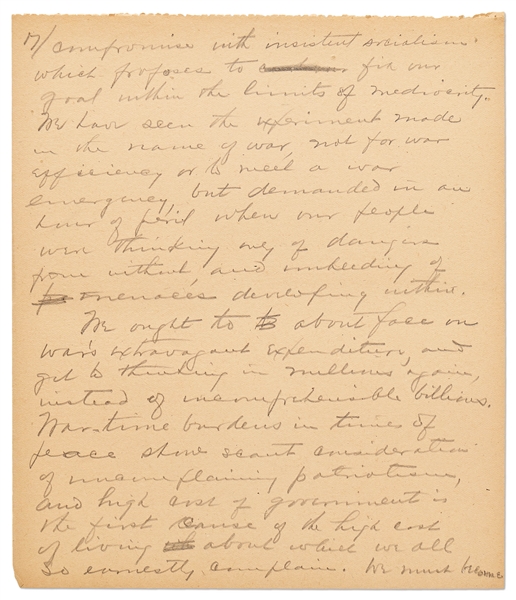 7/ compromise with insistent socialism
which proposes to fix our
goal within the limits of mediocrity.
We have seen the experiment made
in the name of war, not for war
efficiency or to meet a war
emergency, but demanded in an
hour of peril when our people
were thinking only of dangers
from without, and unheeding of
menaces developing within.
We ought to about face on
war's extravagant expenditure, and
get to thinking in millions again,
instead of incomprehensible billions.
War-time burdens in times of
peace show scant consideration
of uncomplaining patriotism,
and high cost of government is
the first cause of the high cost
of living about which we all
so earnestly complain. We must become